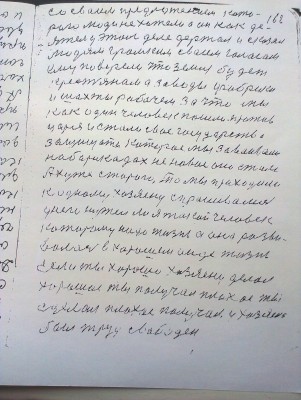 со своим предложением кото- 162
рого люди не хотели а он как де-
этом деле держал и сказал
людям громким своим голосом
ему поверим что земля будет
крестьянам а заводы фабрики
и шахты рабочем за что мы
как один человек пошли против
царя и стали свое государство
защищать которое мы завоевали
на барикадах не новое оно стало
а хуже старого То мы приходили
к одному хозяину спрашивали
у него нужен ли я такой человек
которому надо жизнь а они разви-
вались в хорошем виде жизнь
если ты хороший хозяину делал
хорошое ты получал плохое ты
сделал плохое получал и хозяин
был труд свободен